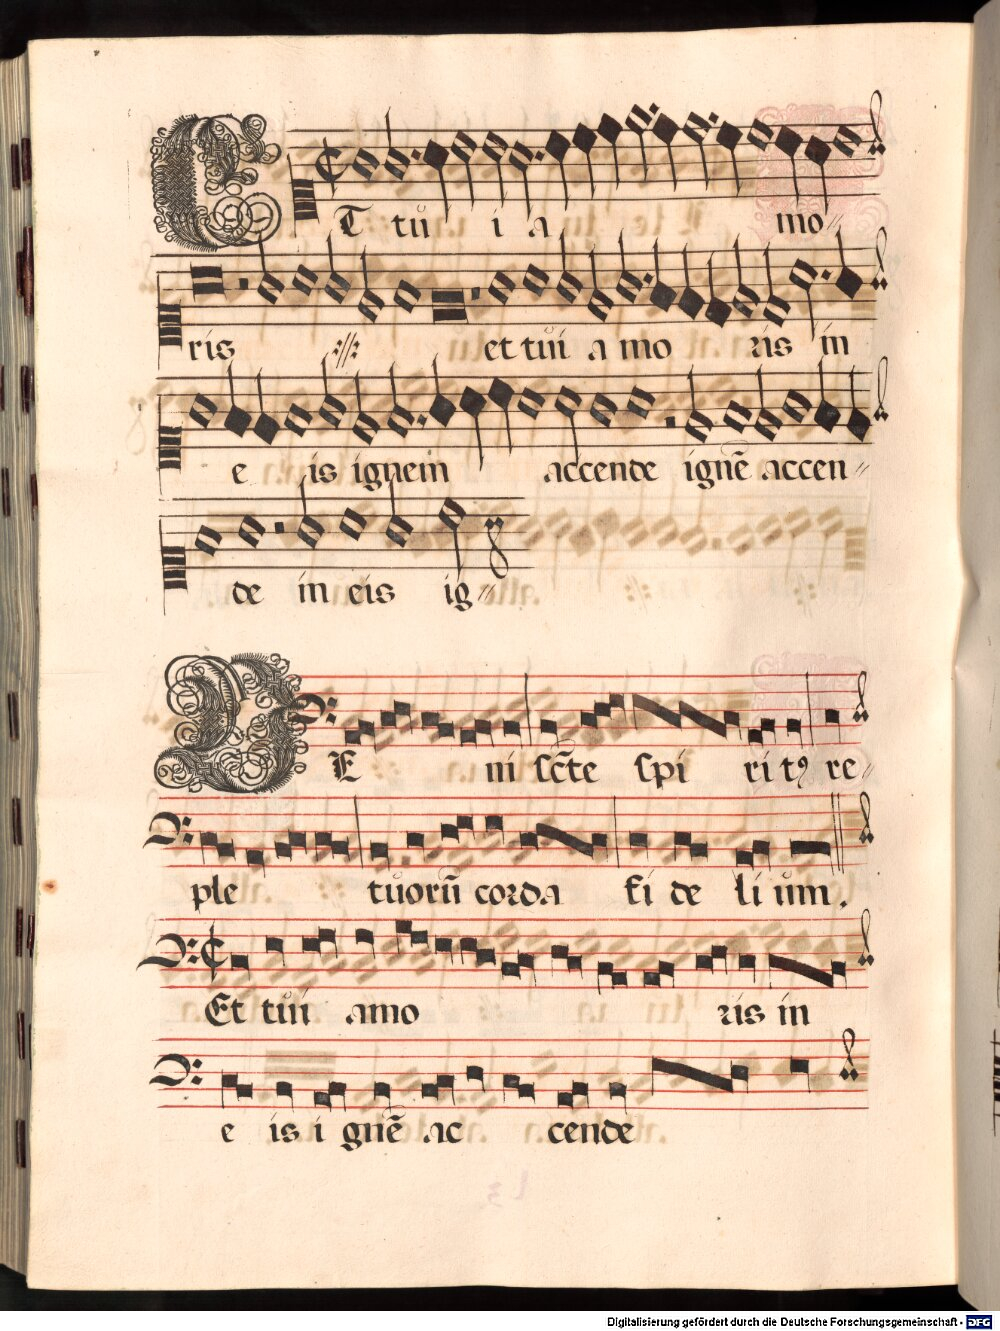 ET tui a mo
ris et tui a mo ris in
e is ignem accende ignē accen
de in eis ig
VE ni scte spi rit9 re
ple tuorū corda fi de li um.
Et tui amo ris in
e is i gnē ac cende
Digitalisierung gefördert durch die Deutsche Forschungsgemeinschaft - DFG